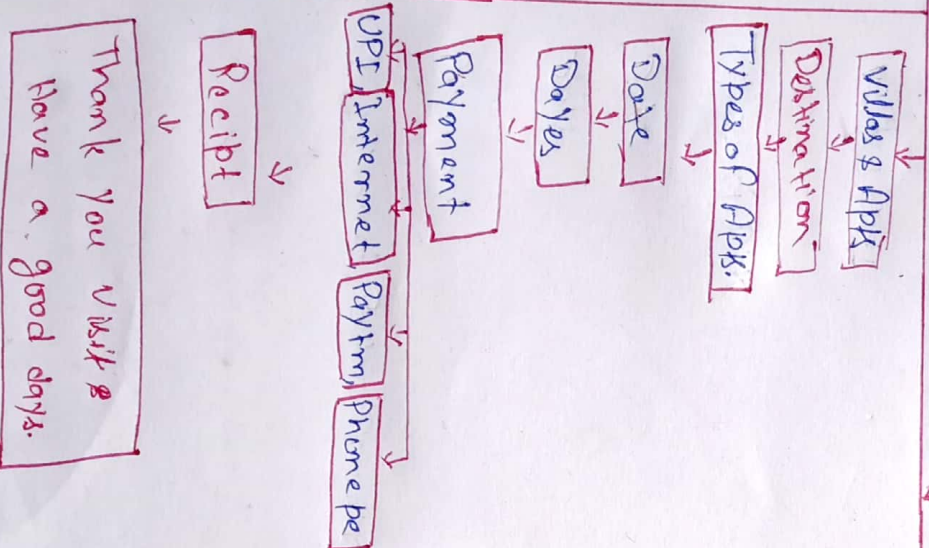 Villas & Apts
Destination
Types of Apts.
Date
Dayes
Payment
UPI, Internet, Paytm, Phone pe
Recipt
Thank you visit &
Have a good days.